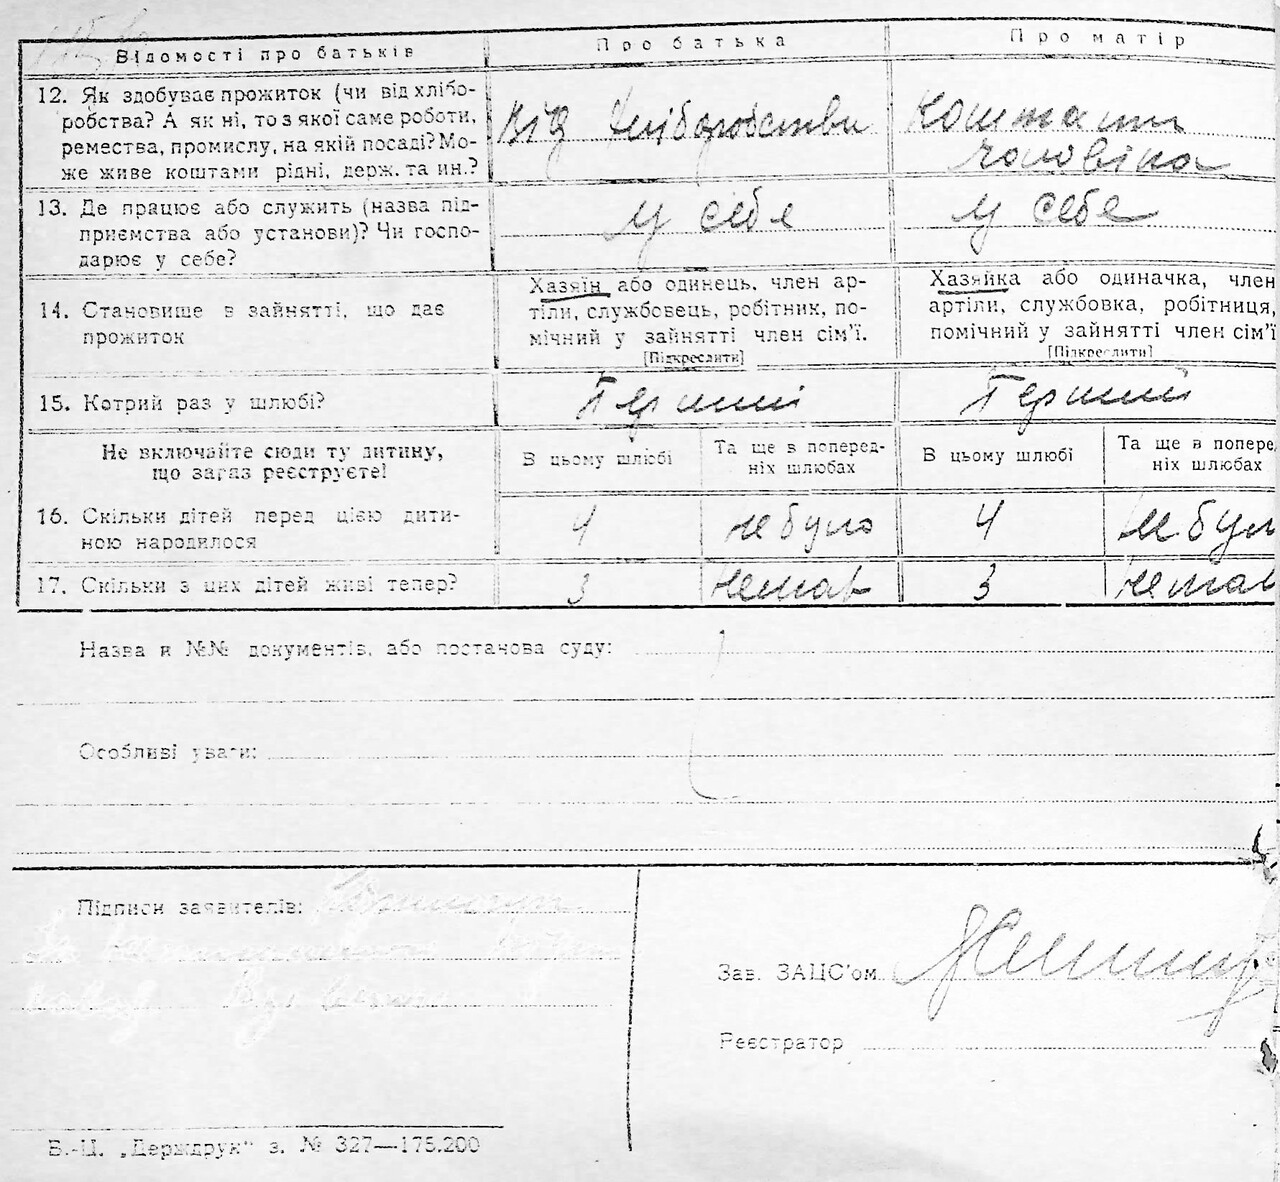 Відомості про батьків
Про батька
Про матір
12. Як здобуває прожиток (чи від хлібо-
робства? А як ні, то з якої саме роботи,
ремества, промислу, на якій посаді? Мо-
же живе коштами рідні, держ. та ин.?
від хліборобства
коштами
чоловіка
13. Де працює або служить (назва під-
приємства або установи)? Чи госпо-
дарює у себе?
у себе
у себе
14. Становище в зайнятті, що дає
прожиток
Хазяїн або одинець, член ар-
тіли, службовець, робітник, по-
мічний у зайнятті член сім'ї.
[Підкреслити]
Хазяйка або одиначка, член
артіли, службовка, робітниця,
помічний у зайнятті член сім'ї
[Підкреслити]
15. Котрий раз у шлюбі?
Перший
Перший
Не включайте сюди ту дитину,
що зараз реєструєте!
В цьому шлюбі
Та ще в поперед-
ніх шлюбах
В цьому шлюбі
Та ще в попере
ніх шлюбах
16. Скільки дітей перед цією дити-
ною народилося
4
не було
4
не бул
17. Скільки з цих дітей живі тепер?
3
немає
3
немає
Назва й №№ документів, або постанова суду:
Особливі уваги:
Підписи заявителів:
Зав. ЗАЦС'ом
Реєстратор
Б.-Ц. „Держдрук" з. № 327—175.200